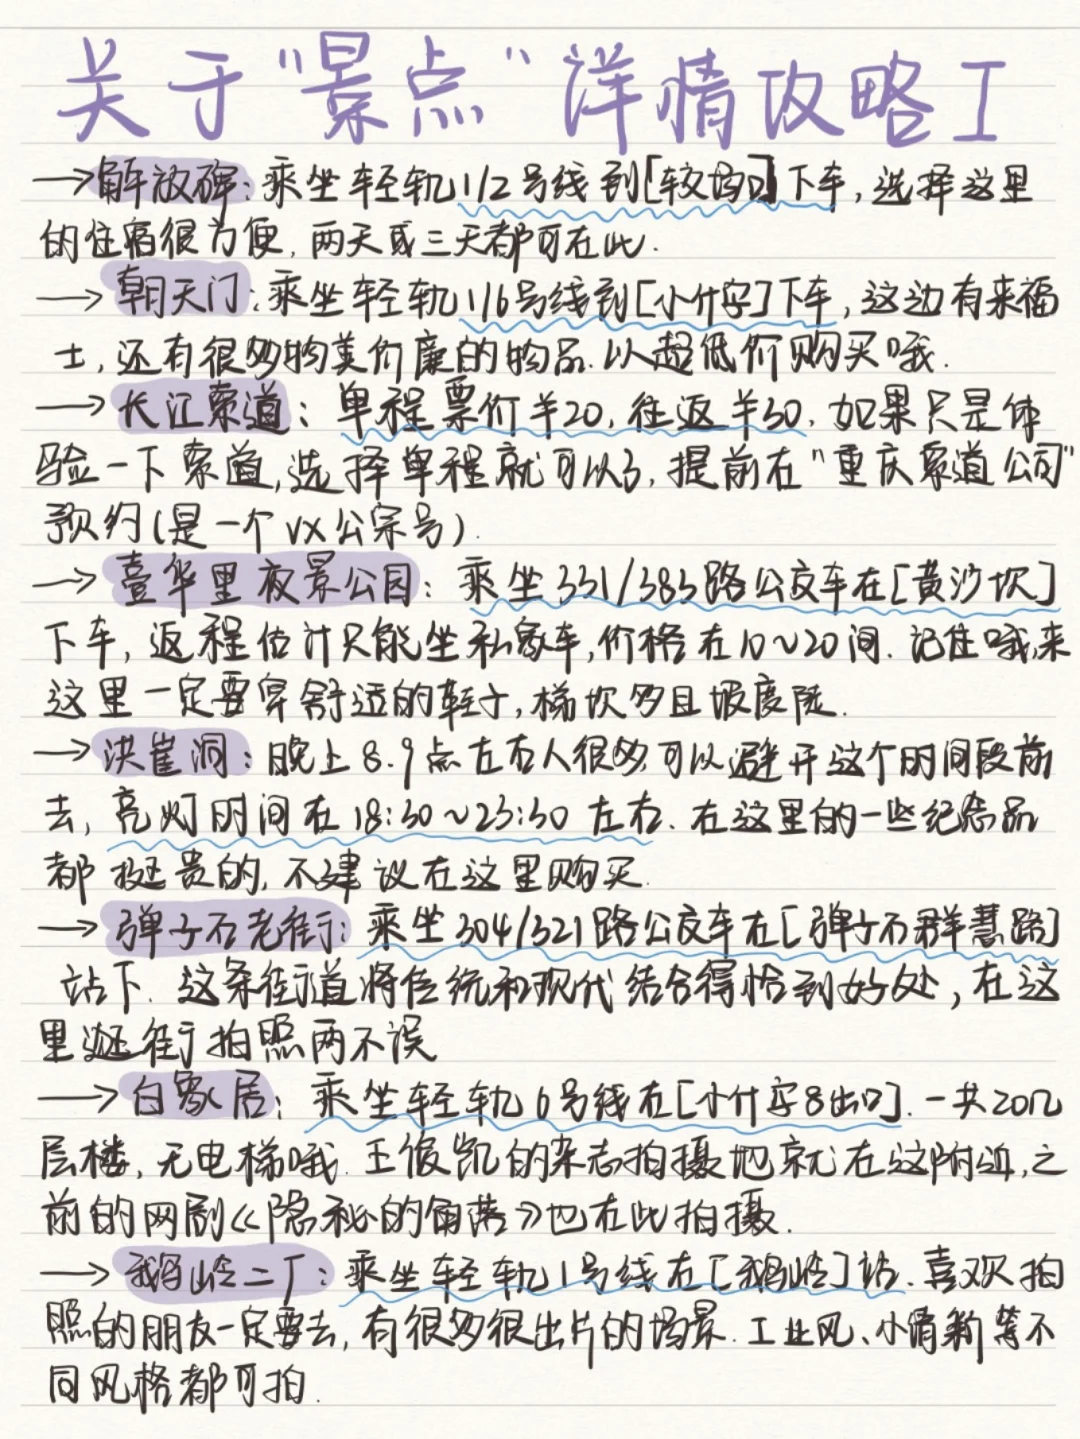 关于“景点”详情攻略I
→解放碑:乘坐轻轨1/2号线到[较场口]下车,选择这里
的住宿很方便,两天或三天都可在此.
→朝天门:乘坐轻轨1/6号线到[小什字]下车,这边有来福
士,还有很多物美价廉的物品.以超低价购买哦.
→长江索道:单程票价羊20,往返羊30.如果只是体
验一下索道,选择单程就可以了,提前在“重庆索道公司”
预约(是一个VX公宗号).
→壹华里夜景公园:乘坐331/383路公交车在[黄沙坎]
下车,返程估计只能坐私家车,价格在10~20间.记住哦,来
这里一定要穿舒适的鞋子,梯坎多且坡度陡.
→洪崖洞:晚上8.9点左右人很多,可以避开这个时间段前
去,亮灯时间在18:30~23:30左右.在这里的一些纪念品
都挺贵的,不建议在这里购买.
→弹子石老街:乘坐304/321路公交车在[弹子石群慧路]
站下.这条街道将传统和现代结合得恰到好处,在这
里逛街拍照两不误
→白象居:乘坐轻轨6号线在[小什字8出口].一共20几
层楼,无电梯哦.王俊凯的杂志拍摄地就在这附近,之
前的网剧《隐秘的角落》也在此拍摄.
→鹅岭二厂:乘坐轻轨1号线在[鹅岭]站.喜欢拍
照的朋友一定要去,有很多很出片的场景.工业风、小清新等不
同风格都可拍.